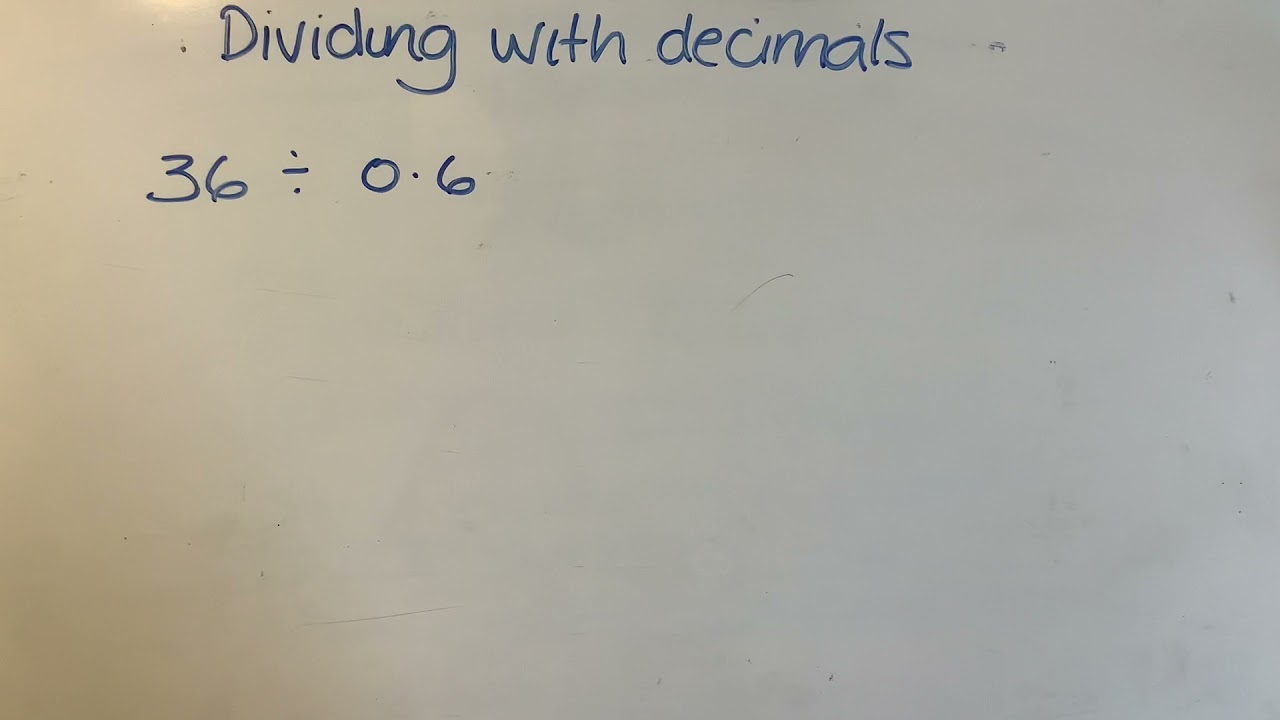 Dividing with decimals
36 ÷ 0.6